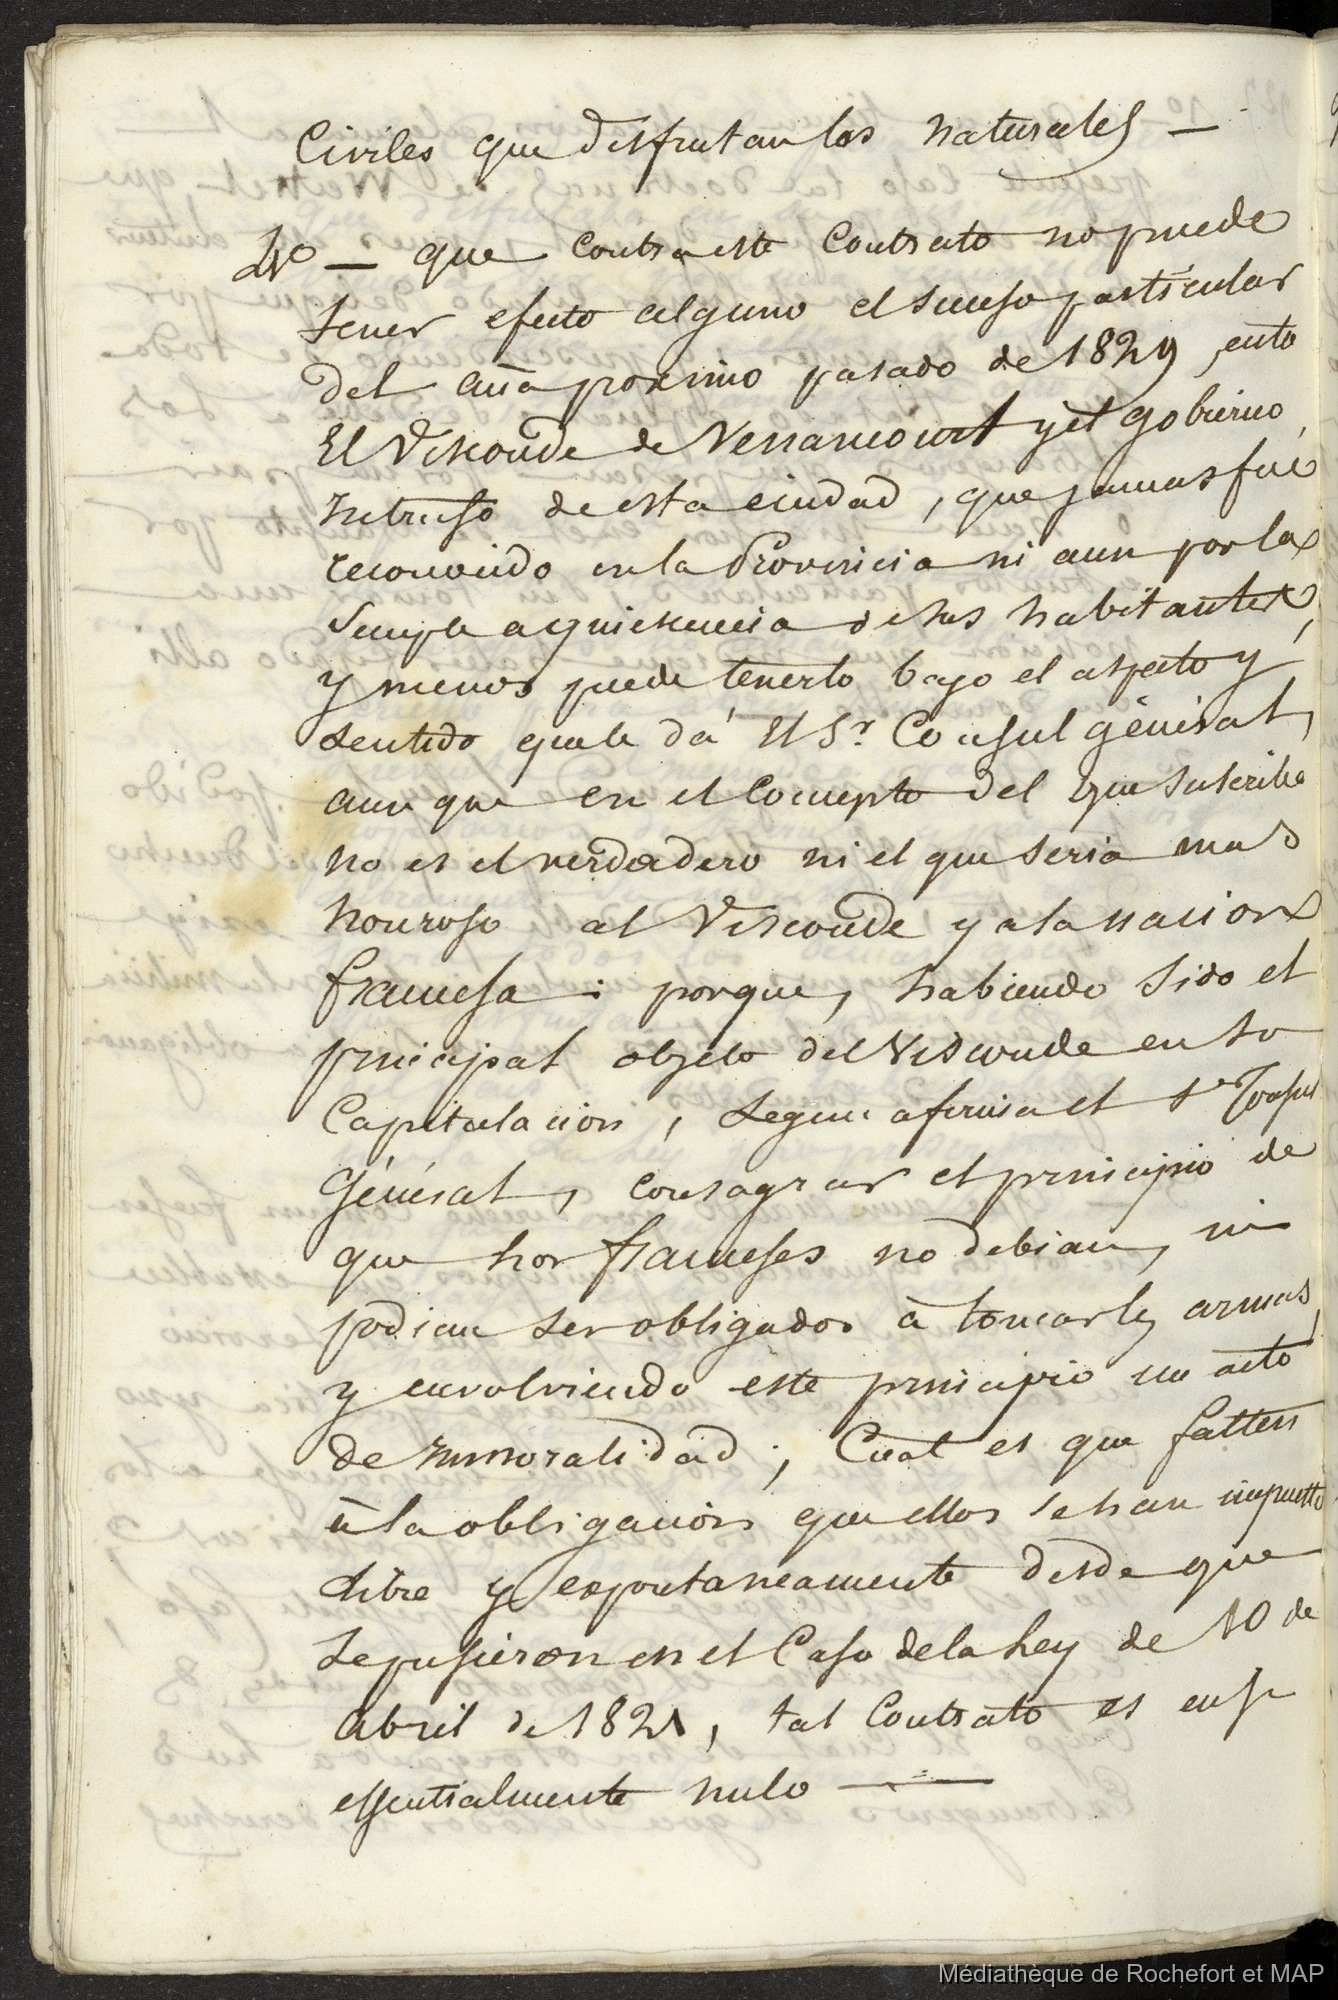 Civiles que disfrutan los naturales —
4º — que contra este contrato no puede
tener efecto alguno el suceso particular
del año proximo pasado de 1829, ento
El Visconde de Venancourt y el gobierno
Intruso de esta ciudad, que jamas fue
reconocido en la Provincia ni aun por la
simple aquiescencia de sus habitantes,
y menos puede tenerlo bajo el aspecto y
sentido que le dá El Sr. Consul géneral,
aun que en el concepto del que suscribe
no es el verdadero ni el que seria mas
honroso al Visconde y a la nacion
francesa : porque, habiendo sido el
principal objeto del Visconde en su
Capitulacion, segun afirma el Sr Consul
Géneral, consagrar el principio de
que los franceses no debian, ni
podian ser obligados à tomar las armas,
y envolviendo este principio un acto
de inmoralidad, cual es que falten
à la obligacion que ellos se han impuesto
libre y espontaneamente desde que
se pusieron en el caso de la Ley de 10 de
abril de 1821, tal contrato es en si
essentialmente nulo —
Médiathèque de Rochefort et MAP